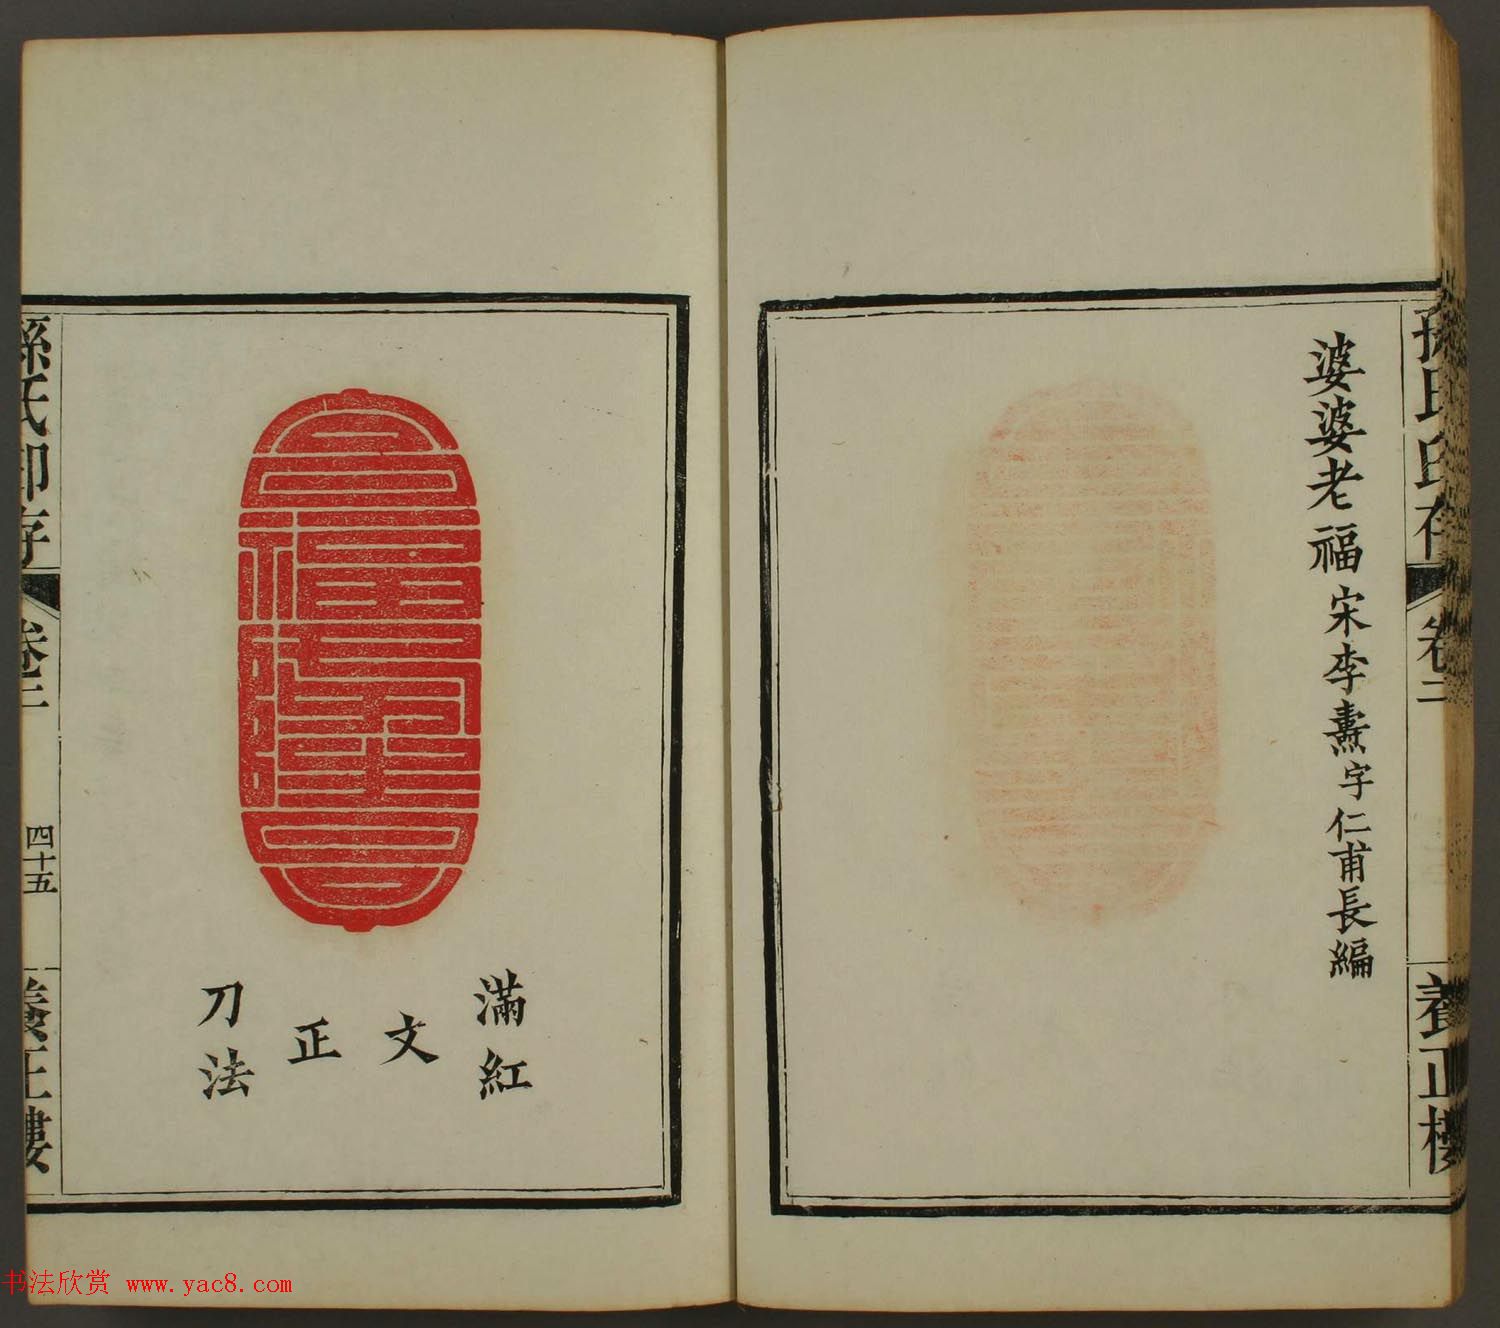 孫氏印存
卷二
養正樓
婆婆老福 宋李燾字仁甫長編
滿紅
文
正
刀法
孫氏印存
卷二
四十五
養正樓
书法欣赏 www.yac8.com